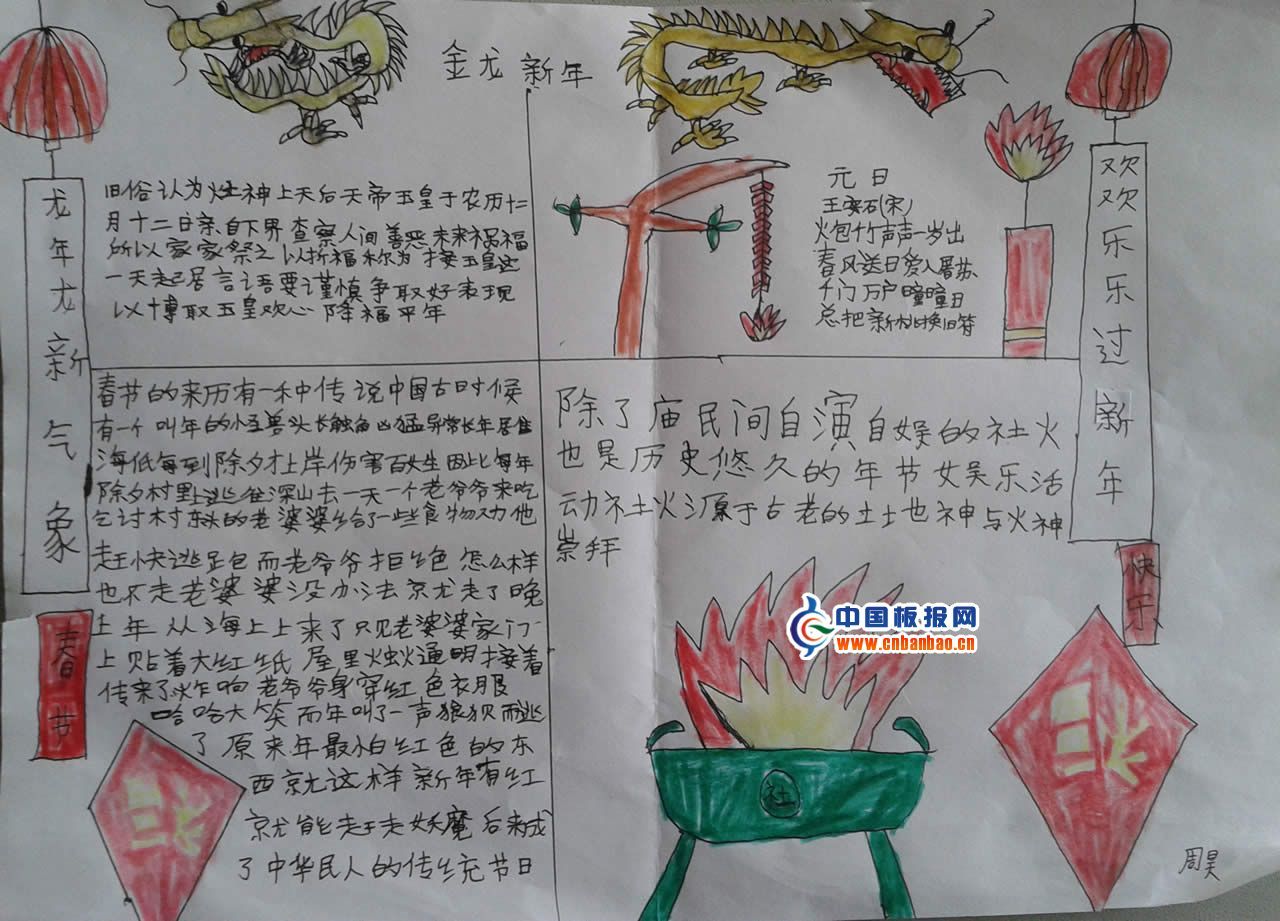 金龙新年
龙年龙新气象
旧俗认为灶神上天后天帝玉皇于农历十二
月十二日亲自下界查察人间善恶未来祸福
所以家家祭之以折福称为接玉皇这
一天起居言语要谨慎争取好表现
以博取玉皇欢心降福平年
元日
王安石(宋)
火包竹声声一岁出
春风送日爱入屠苏
千门万户曈曈日
总把新桃换旧符
欢欢乐乐过新年
春节的来历有一种传说中国古时候
有一个叫年的小怪兽头长触角凶猛异常长年居住
海低每到除夕才上岸伤害百姓生因此每年
除夕村里逃往深山去一天一个老爷爷来吃
乞讨村东头的老婆婆给了一些食物劝他
赶快逃跑包而老爷爷拒绝色怎么样
也不走老婆婆没办法京尤走了晚
上年从海上上来了只见老婆婆家门
上贴着大红纸屋里火虫火通明接着
传来了炸响老爷爷身穿红色衣服
哈哈大笑而年叫了一声狼狈而逃
了原来年最怕红色的东
西京尤这样新年有红
京尤能赶走妖魔后来成
了中华民人的传统节日
除了庙民间自演自娱的社火
也是历史悠久的年节女吴乐活
动社火源于古老的土地神与火神
崇拜
春节
快乐
福
福
社
中国板报网
www.cnbanbao.cn
周昊